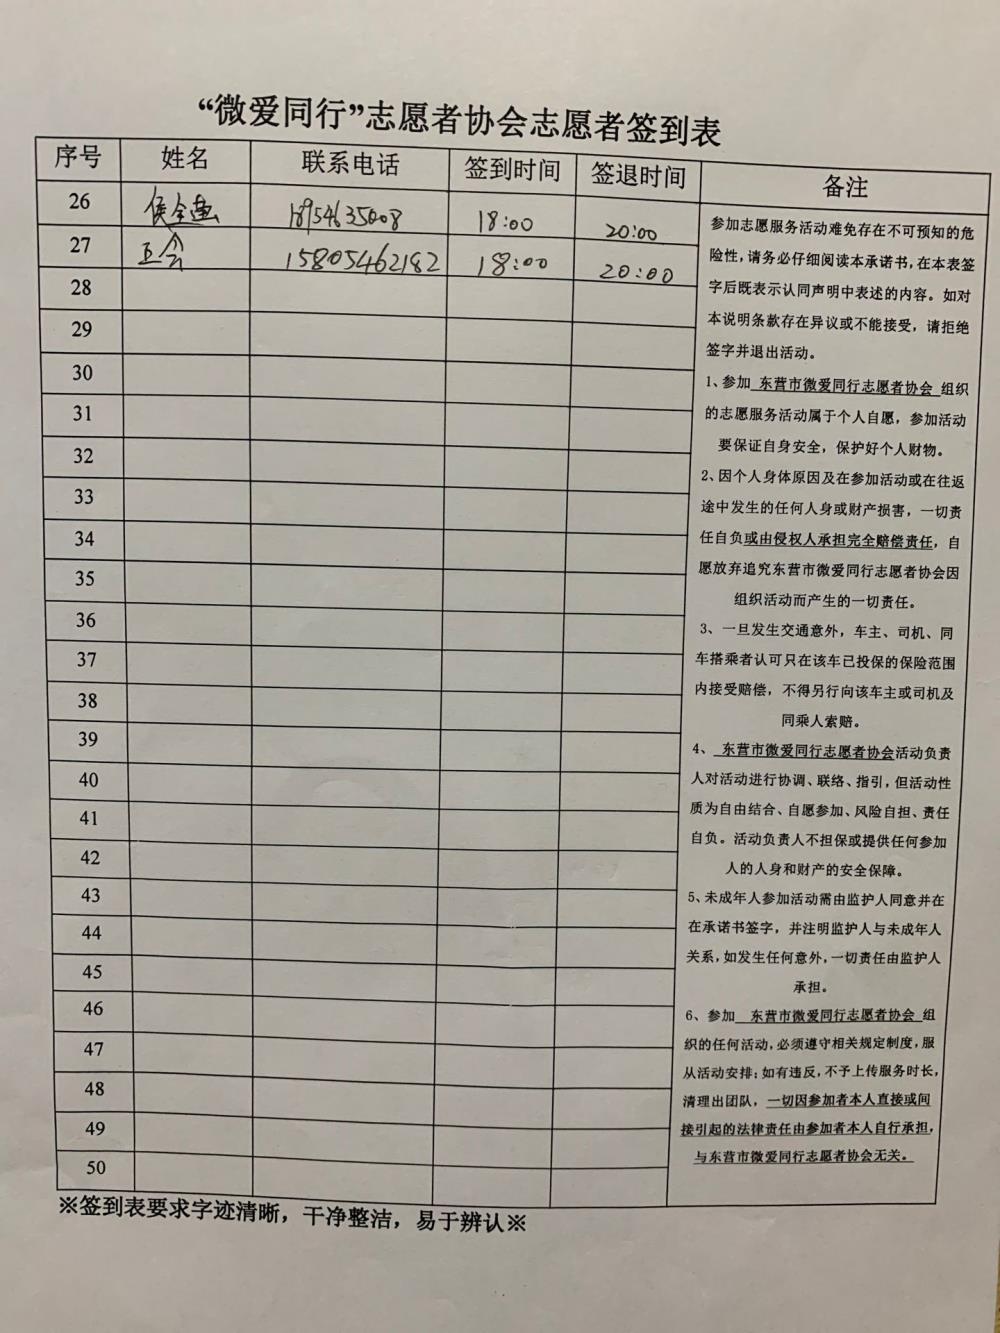 “微爱同行”志愿者协会志愿者签到表
序号 姓名 联系电话 签到时间 签退时间 备注
26 侯全 18954635008 18:00 20:00
27 王会 15805462182 18:00 20:00
28
29
30
31
32
33
34
35
36
37
38
39
40
41
42
43
44
45
46
47
48
49
50
参加志愿服务活动难免存在不可预知的危
险性,请务必仔细阅读本承诺书,在本表签
字后既表示认同声明中表述的内容。如对
本说明条款存在异议或不能接受,请拒绝
签字并退出活动。
1、参加 东营市微爱同行志愿者协会 组织
的志愿服务活动属于个人自愿，参加活动
要保证自身安全，保护好个人财物。
2、因个人身体原因及在参加活动或在往返
途中发生的任何人身或财产损害，一切责
任自负或由侵权人承担完全赔偿责任，自
愿放弃追究东营市微爱同行志愿者协会因
组织活动而产生的一切责任。
3、一旦发生交通意外，车主、司机、同
车搭乘者认可只在该车已投保的保险范围
内接受赔偿，不得另行向该车主或司机及
同乘人索赔。
4、 东营市微爱同行志愿者协会活动负责
人对活动进行协调、联络、指引，但活动性
质为自由结合、自愿参加、风险自担、责任
自负。活动负责人不担保或提供任何参加
人的人身和财产的安全保障。
5、未成年人参加活动需由监护人同意并在
在承诺书签字，并注明监护人与未成年人
关系,如发生任何意外,一切责任由监护人
承担。
6、参加 东营市微爱同行志愿者协会 组
织的任何活动,必须遵守相关规定制度,服
从活动安排;如有违反,不予上传服务时长,
清理出团队，一切因参加者本人直接或间
接引起的法律责任由参加者本人自行承担，
与东营市微爱同行志愿者协会无关。
※签到表要求字迹清晰，干净整洁，易于辨认※